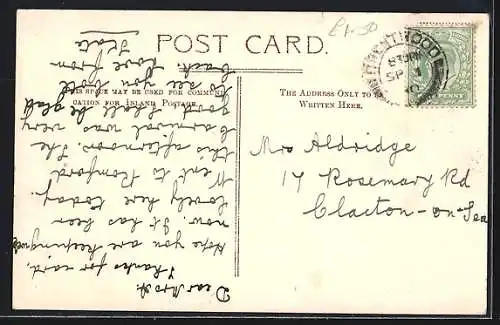 £1-50
POST CARD.
THIS SPACE MAY BE USED FOR COMMUNI-
CATION FOR INLAND POSTAGE.
THE ADDRESS ONLY TO
WRITTEN HERE.
BRENTWOOD
SP 1
Mrs Aldridge
17 Rosemary Rd
Clacton-on-Sea
Dear Mrs A.
Thanks for card,
Hope you are keeping well
now. It has been
lovely here today.
Went to Romford
this afternoon. The
Carnival was very
good. Shall be glad
to see you both
back. Love from
Kate